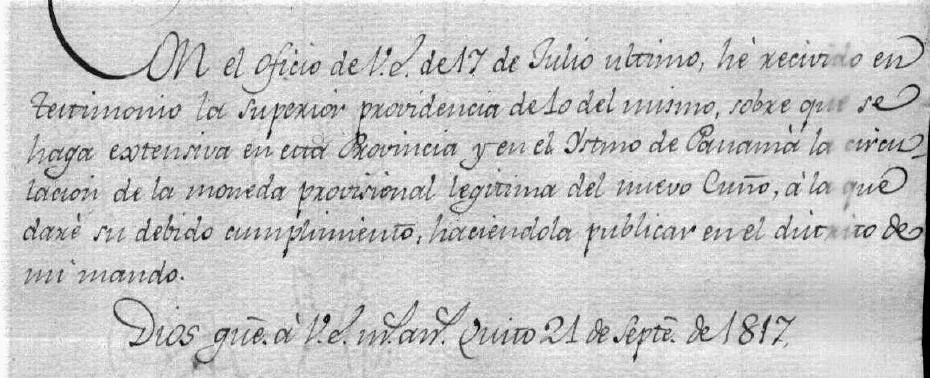 En el oficio de V.E. de 17 de Julio ultimo, hè recivido en
testimonio la superior providencia de 10 del mismo, sobre que se
haga extensiva en esta Provincia y en el Ystmo de Panamà la circu-
lacion de la moneda provisional legitima del nuevo Cuño, à la que
darè su debido cumplimiento, haciendola publicar en el distrito de
mi mando.
Dios gũe. à V.E. m.s an.s Quito 21 de Septẽ. de 1817.